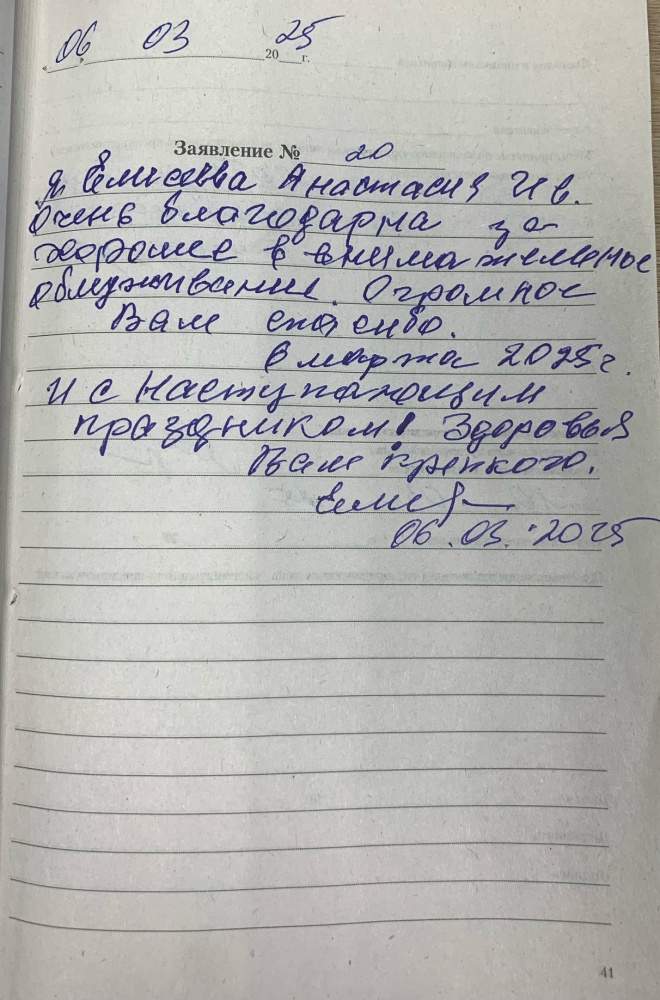 « 06 » 03 2025 г.
Заявление № 20
Я, Елисеева Анастасия Ив.
очень благодарна за
хорошее в внимательное
обслуживание. Огромное
Вам спасибо.
6 марта 2025 г.
И с Наступающим
праздником! Здоровья
Вам крепкого.
06.03.2025
41